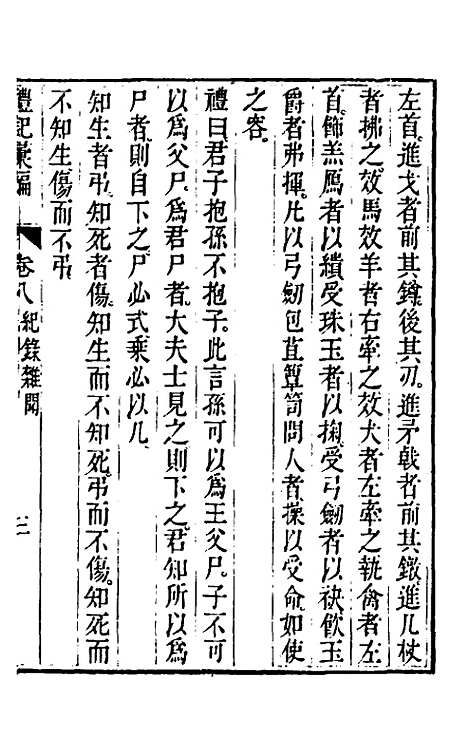 左首。進戈者前其鐏。後其刃。進矛戟者前其鐓。進几杖
者拂之。效馬效羊者右牽之。效犬者左牽之。執禽者左
首。飾羔鴈者以繢。受珠玉者以掬。受弓劒者以袂。飲玉
爵者弗揮。凡以弓劒包苴簞笥問人者。操以受命。如使
之容。
禮曰君子抱孫不抱子。此言孫可以爲王父尸。子不可
以爲父尸。爲君尸者。大夫士見之則下之。君知所以爲
尸者。則自下之。尸必式。乘必以几。
知生者弔。知死者傷。知生而不知死。弔而不傷。知死而
不知生。傷而不弔。
禮記彙編
卷八
紀錄雜聞
三